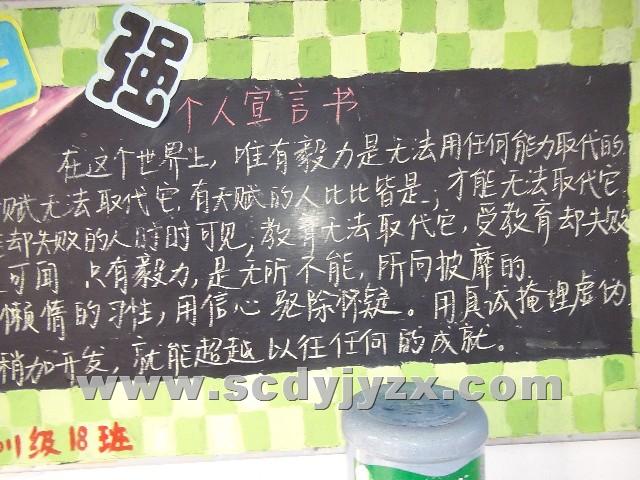 强
个人宣言书
在这个世界上，唯有毅力是无法用任何能力取代的
赋无法取代它，有天赋的人比比皆是；才能无法取代它
却失败的人时时可见；教育无法取代它，受教育却失败
可闻 只有毅力，是无所不能，所向披靡的.
懒情的习性，用信心驱除怀疑。用真诚掩埋虚伪
稍加开发，就能超越以往任何的成就。
www.scdyjyzx.com
级18班